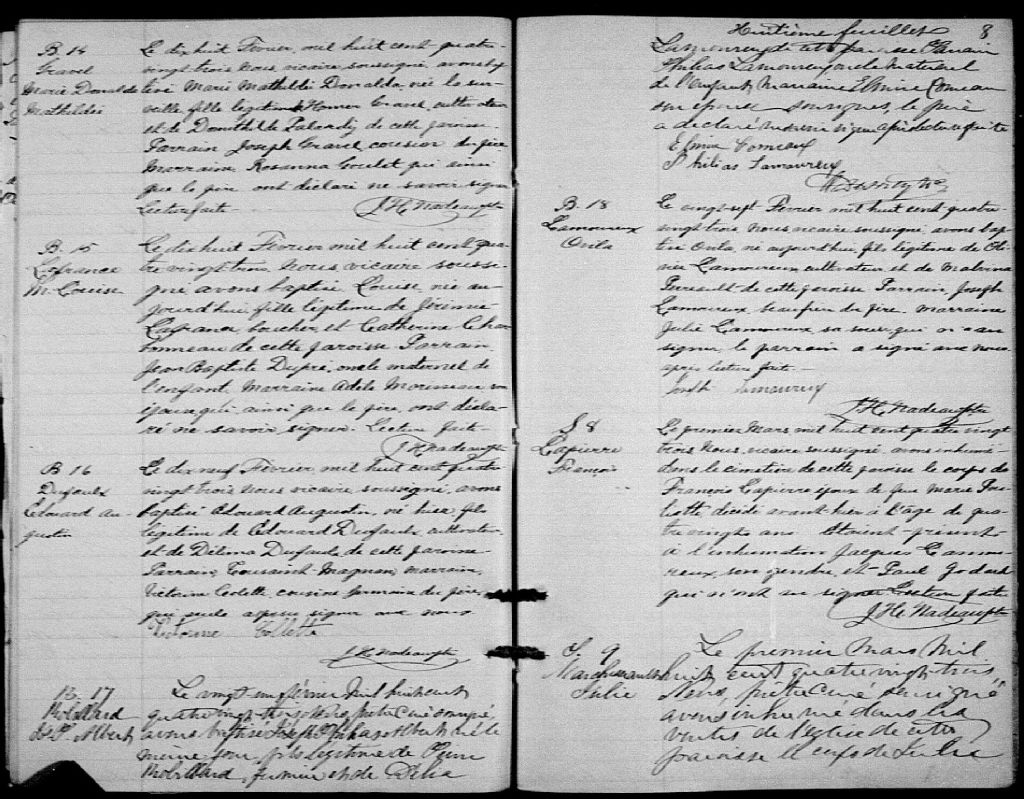 B. 14
Gravel
Marie Donalda
Mathildée
Le dix huit Février, mil huit cent quatre
vingt trois nous, vicaire, soussigné, avons
Marie Mathilde Donalda, née la
fille légitime Homer Gravel, cultivateur
et de de cette paroisse.
Parrain Joseph Gravel, cousin du père
Marraine Rosanna Goulet qui ainsi
que le père ont déclaré ne savoir signer
Lecture faite
J. H. Nadeau ptre
B. 15
Lafrance
M. Louise
Le dix huit Février mil huit cent qua-
tre vingt trois, Nous, vicaire sousse-
gné avons baptisé Louise, née au-
jourd'hui, fille légitime de Jérémie
Lafrance, boucher, et Catherine Char
bonneau de cette paroisse. Parrain
Jean Baptiste Dupré, oncle maternel de
l'enfant, Marraine Adèle Morisseau son
épouse qui, ainsi que le père, ont décla-
ré ne savoir signer. Lecture faite
J. H. Nadeau ptre
B. 16
Dufaulx
Edouard Au-
gustin
Le dix neuf Février, mil huit cent quatre
vingt trois nous vicaire soussigné, avons
baptisé Edouard Augustin, né hier, fils
légitime de Edouard Dufaulx, cultivateur
et de Délima Dufaulx, de cette paroisse
Parrain, Toussaint Magnan, marraine,
Victoire Colette, cousine germaine du père,
qui seule a pu signer avec nous
Victorine Collette
J. H. Nadeau ptre
B. 17
Robillard
Js. P. Albert
Le vingt un février mil huit cent
quatre vingt trois Nous, prêtre curé soussigné,
avons baptisé Joseph Philias Albert né le
même jour, fils légitime de
Robillard, fermier et de Délia
Huitième feuillet 8
Lamoureux de cette paroisse Parrain
Philias Lamoureux oncle maternel
de l'enfant, Marraine Elmire Comeau
son épouse soussignés, le père
a déclaré ne savoir signer après lecture faite
Elmire Comeau
Philias Lamoureux
B. 18
Lamoureux
Ovila
Le vingt-sept Février mil huit cent quatre
vingt trois, Nous vicaire soussigné, avons bap-
tisé Ovila, né aujourd'hui, fils légitime de Oli-
vier Lamoureux cultivateur et de Malvina
Perreault de cette paroisse. Parrain, Joseph
Lamoureux beaufrère du père. Marraine
Julie Lamoureux sa soeur, qui n'a su
signer, le parrain a signé avec nous
après lecture faite.
Joseph Lamoureux
J. H. Nadeau ptre
S 8
Lapierre
François
Le premier Mars, mil huit cent quatre vingt
trois Nous, vicaire soussigné, avons inhumé
dans le cimetière de cette paroisse le corps de
François Lapierre époux de feue Marie Pou-
liotte, décédé avant hier à l'âge de qua-
tre vingts ans. Etaient présents
à l'inhumation Jacques Lamou-
reux, son gendre, et Paul Godard
qui n'ont su signer Lecture faite
J. H. Nadeau ptre
S. 9
Marchessault
Julie
Le premier Mars Mil
huit cent quatre vingt trois
Nous, prêtre curé soussigné
avons inhumé dans les
voûtes de l'église de cette
paroisse le corps de Julie